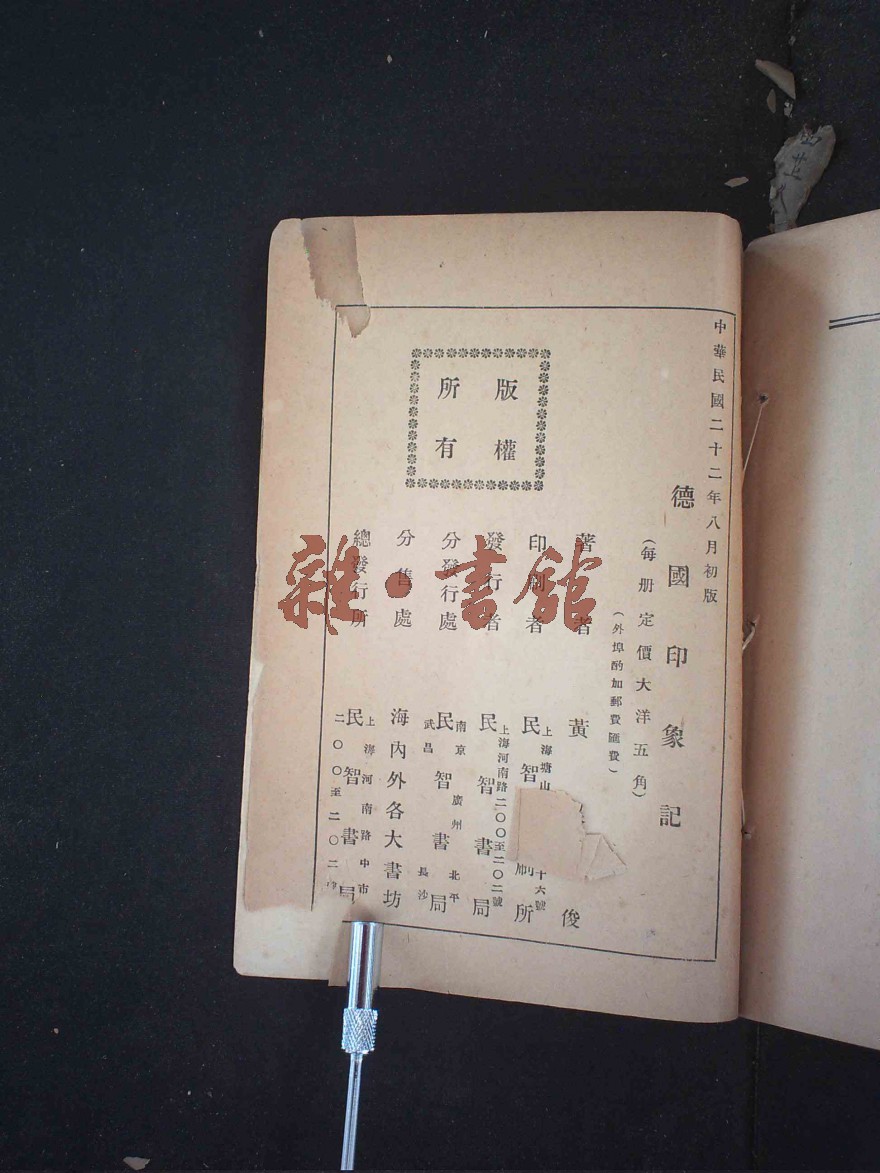 中華民國二十二年八月初版
德國印象記
（每册定價大洋五角）
（外埠酌加郵費匯費）
版權
所有
著者 黃 俊
印刷者 民智 刷所
上海塘山 十六號
發行者 民智書局
上海河南路二〇〇至二〇二號
分發行處 民智書局
南京 廣州 北平
武昌 長沙
分售處 海內外各大書坊
總發行所 民智書局
上海河南路中市
二〇〇至二〇二號
雜·書館